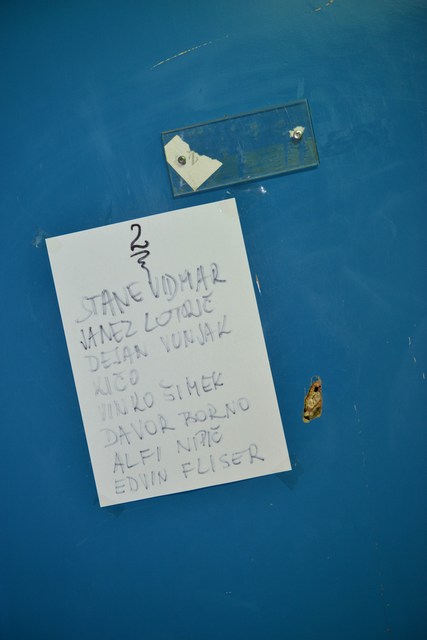 2
STANE VIDMAR
JANEZ LOTRIČ
DEJAN VUNJAK
KIČO
VINKO ŠIMEK
DAVOR BORNO
ALFI NIPIČ
EDVIN FLISER